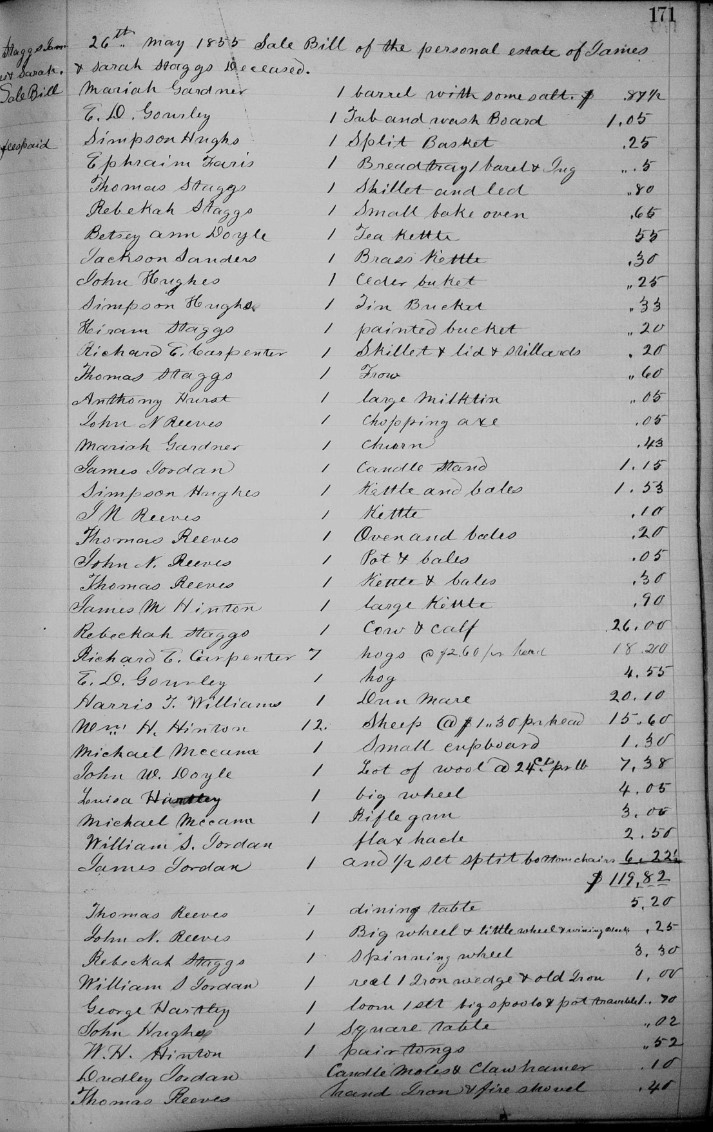 171
Staggs Jam
& Sarah.
Sale Bill
fees paid
26th May 1855 Sale Bill of the personal estate of James
& Sarah Staggs Deceased.
Mariah Gardner 1 barrel with some salt. $ .87½
E. D. Gourley 1 Tub and wash Board 1.05
Simpson Hughs 1 Split Basket .25
Ephraim Faris 1 Bread tray 1 barel & Jug .. 5
Thomas Staggs 1 Skillet and led .80
Rebekah Staggs 1 Small bake oven .65
Betsey Ann Doyle 1 Tea Kettle 55
Jackson Sanders 1 Brass Kettle .30
John Hughes 1 Ceder buket .25
Simpson Hughs 1 Tin Bucket .33
Hiram Staggs 1 painted bucket .20
Richard E. Carpenter 1 Skillet & lid & stillards .20
Thomas Staggs 1 Frow .60
Anthony Hurst 1 large Milktin .05
John N Reeves 1 Chopping axe .05
Mariah Gardner 1 Churn .43
James Jordan 1 Candle Stand 1.15
Simpson Hughes 1 Kettle and bales 1.53
J N Reeves 1 Kettle .10
Thomas Reeves 1 Oven and bales .20
John N. Reeves 1 Pot & bales .05
Thomas Reeves 1 Kettle & bales .30
James M Hinton 1 large Kettle .90
Rebeckah Staggs 1 Cow & calf 26.00
Richard E. Carpenter 7 hogs @ $2.60 pr head 18.20
E. D. Gourley 1 hog 4.55
Harris T. Williams 1 Dun Mare 20.10
Wm. H. Hinton 12. Sheep @ $1.30 pr head 15.60
Michael Mccana 1 Small cupboard 1.30
John W. Doyle 1 Lot of wool @ 24cts pr lb 7,38
Luisa Hartley 1 big wheel 4.05
Michael Mccana 1 Rifle gun 3.00
William S. Jordan flax hacle 2.50
James Jordan 1 and ½ set split bottom chairs 6.22½
$ 119,82
Thomas Reeves 1 dining table 5,20
John N. Reeves 1 Big wheel & little wheel & .25
Rebeckah Staggs 1 Spinning wheel 3,30
William S Jordan 1 reel 1 Iron wedge & old Iron 1.00
George Hartley 1 loom 1 big spools & pot .70
John Hughes 1 Square table .02
W. H. Hinton 1 pair tongs .52
Dudley Jordan Candle Moles & Claw hamer .10
Thomas Reeves hand Iron & fire shovel .40